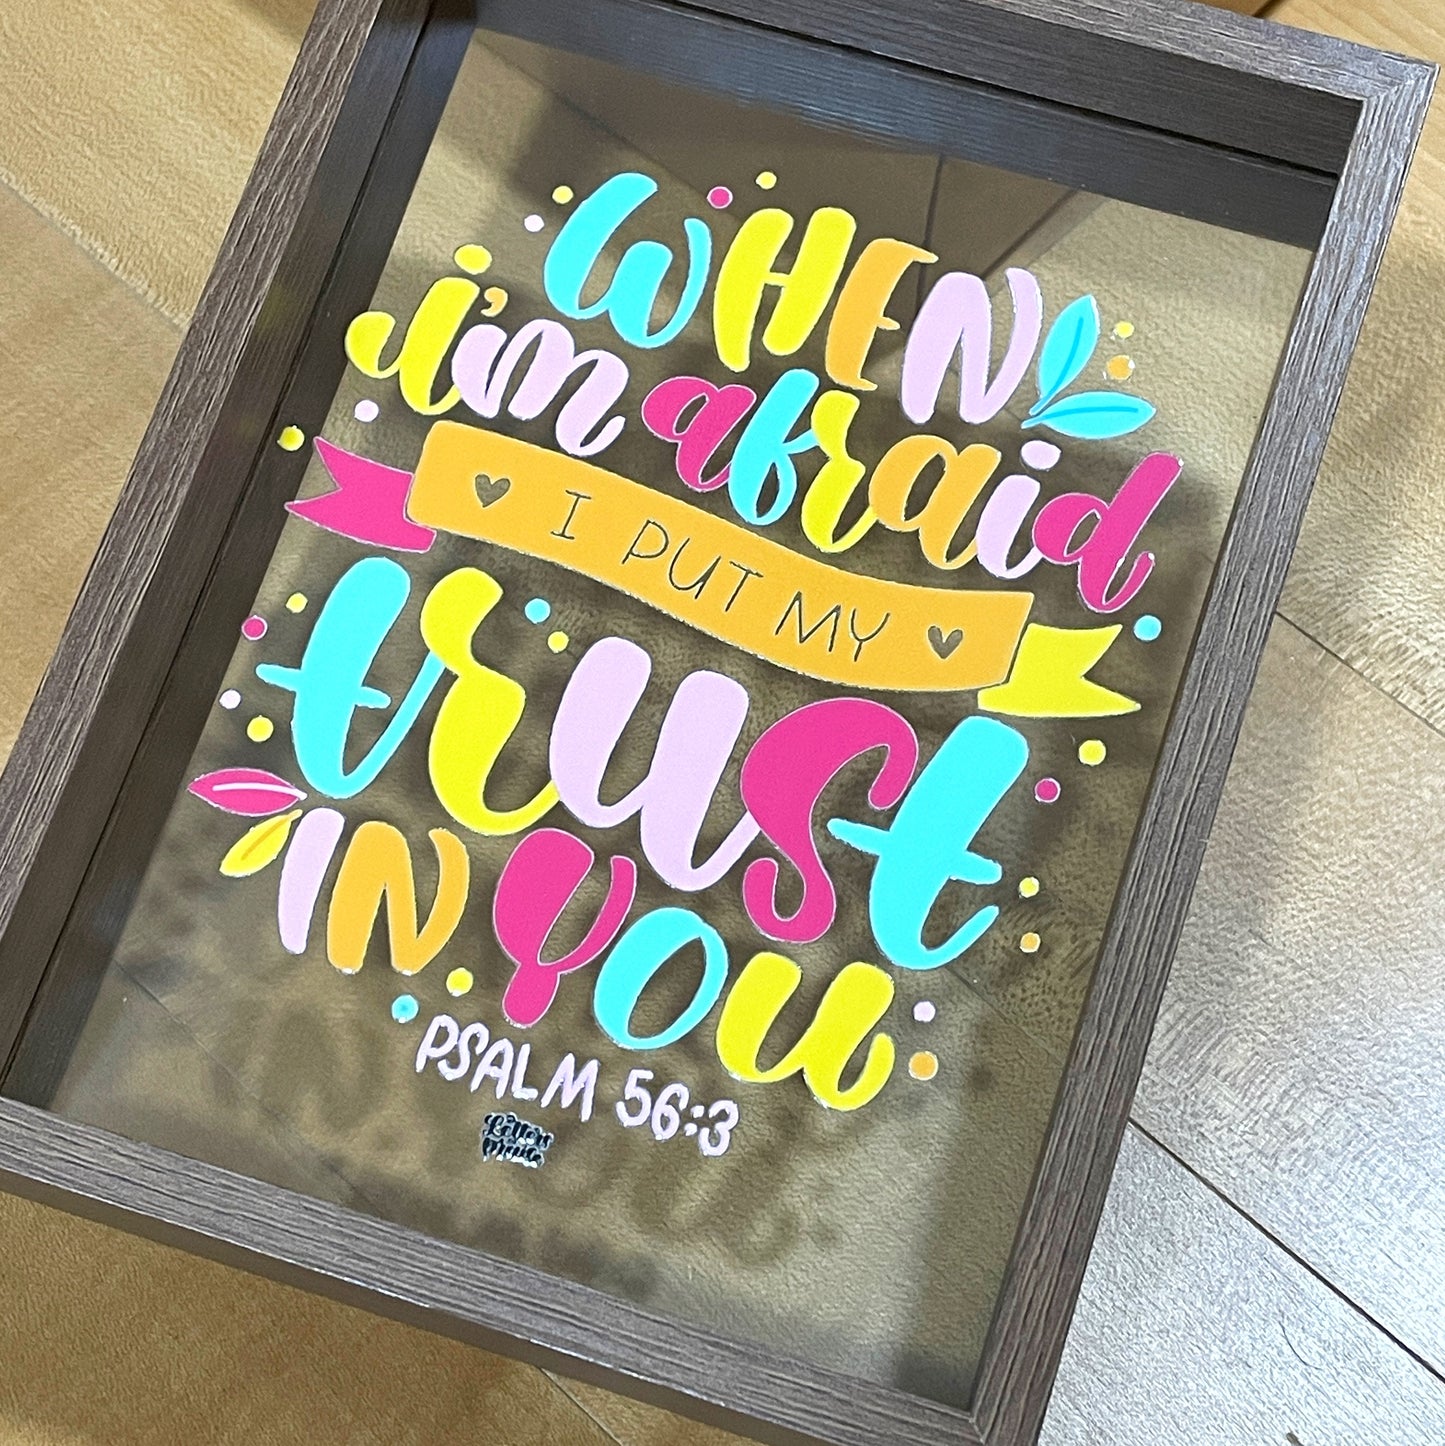 WHEN
I'm afraid
I PUT MY
trust
IN YOU
PSALM 56:3
Letters